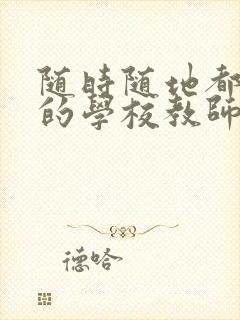 随時随地都
的學校教師
德哈